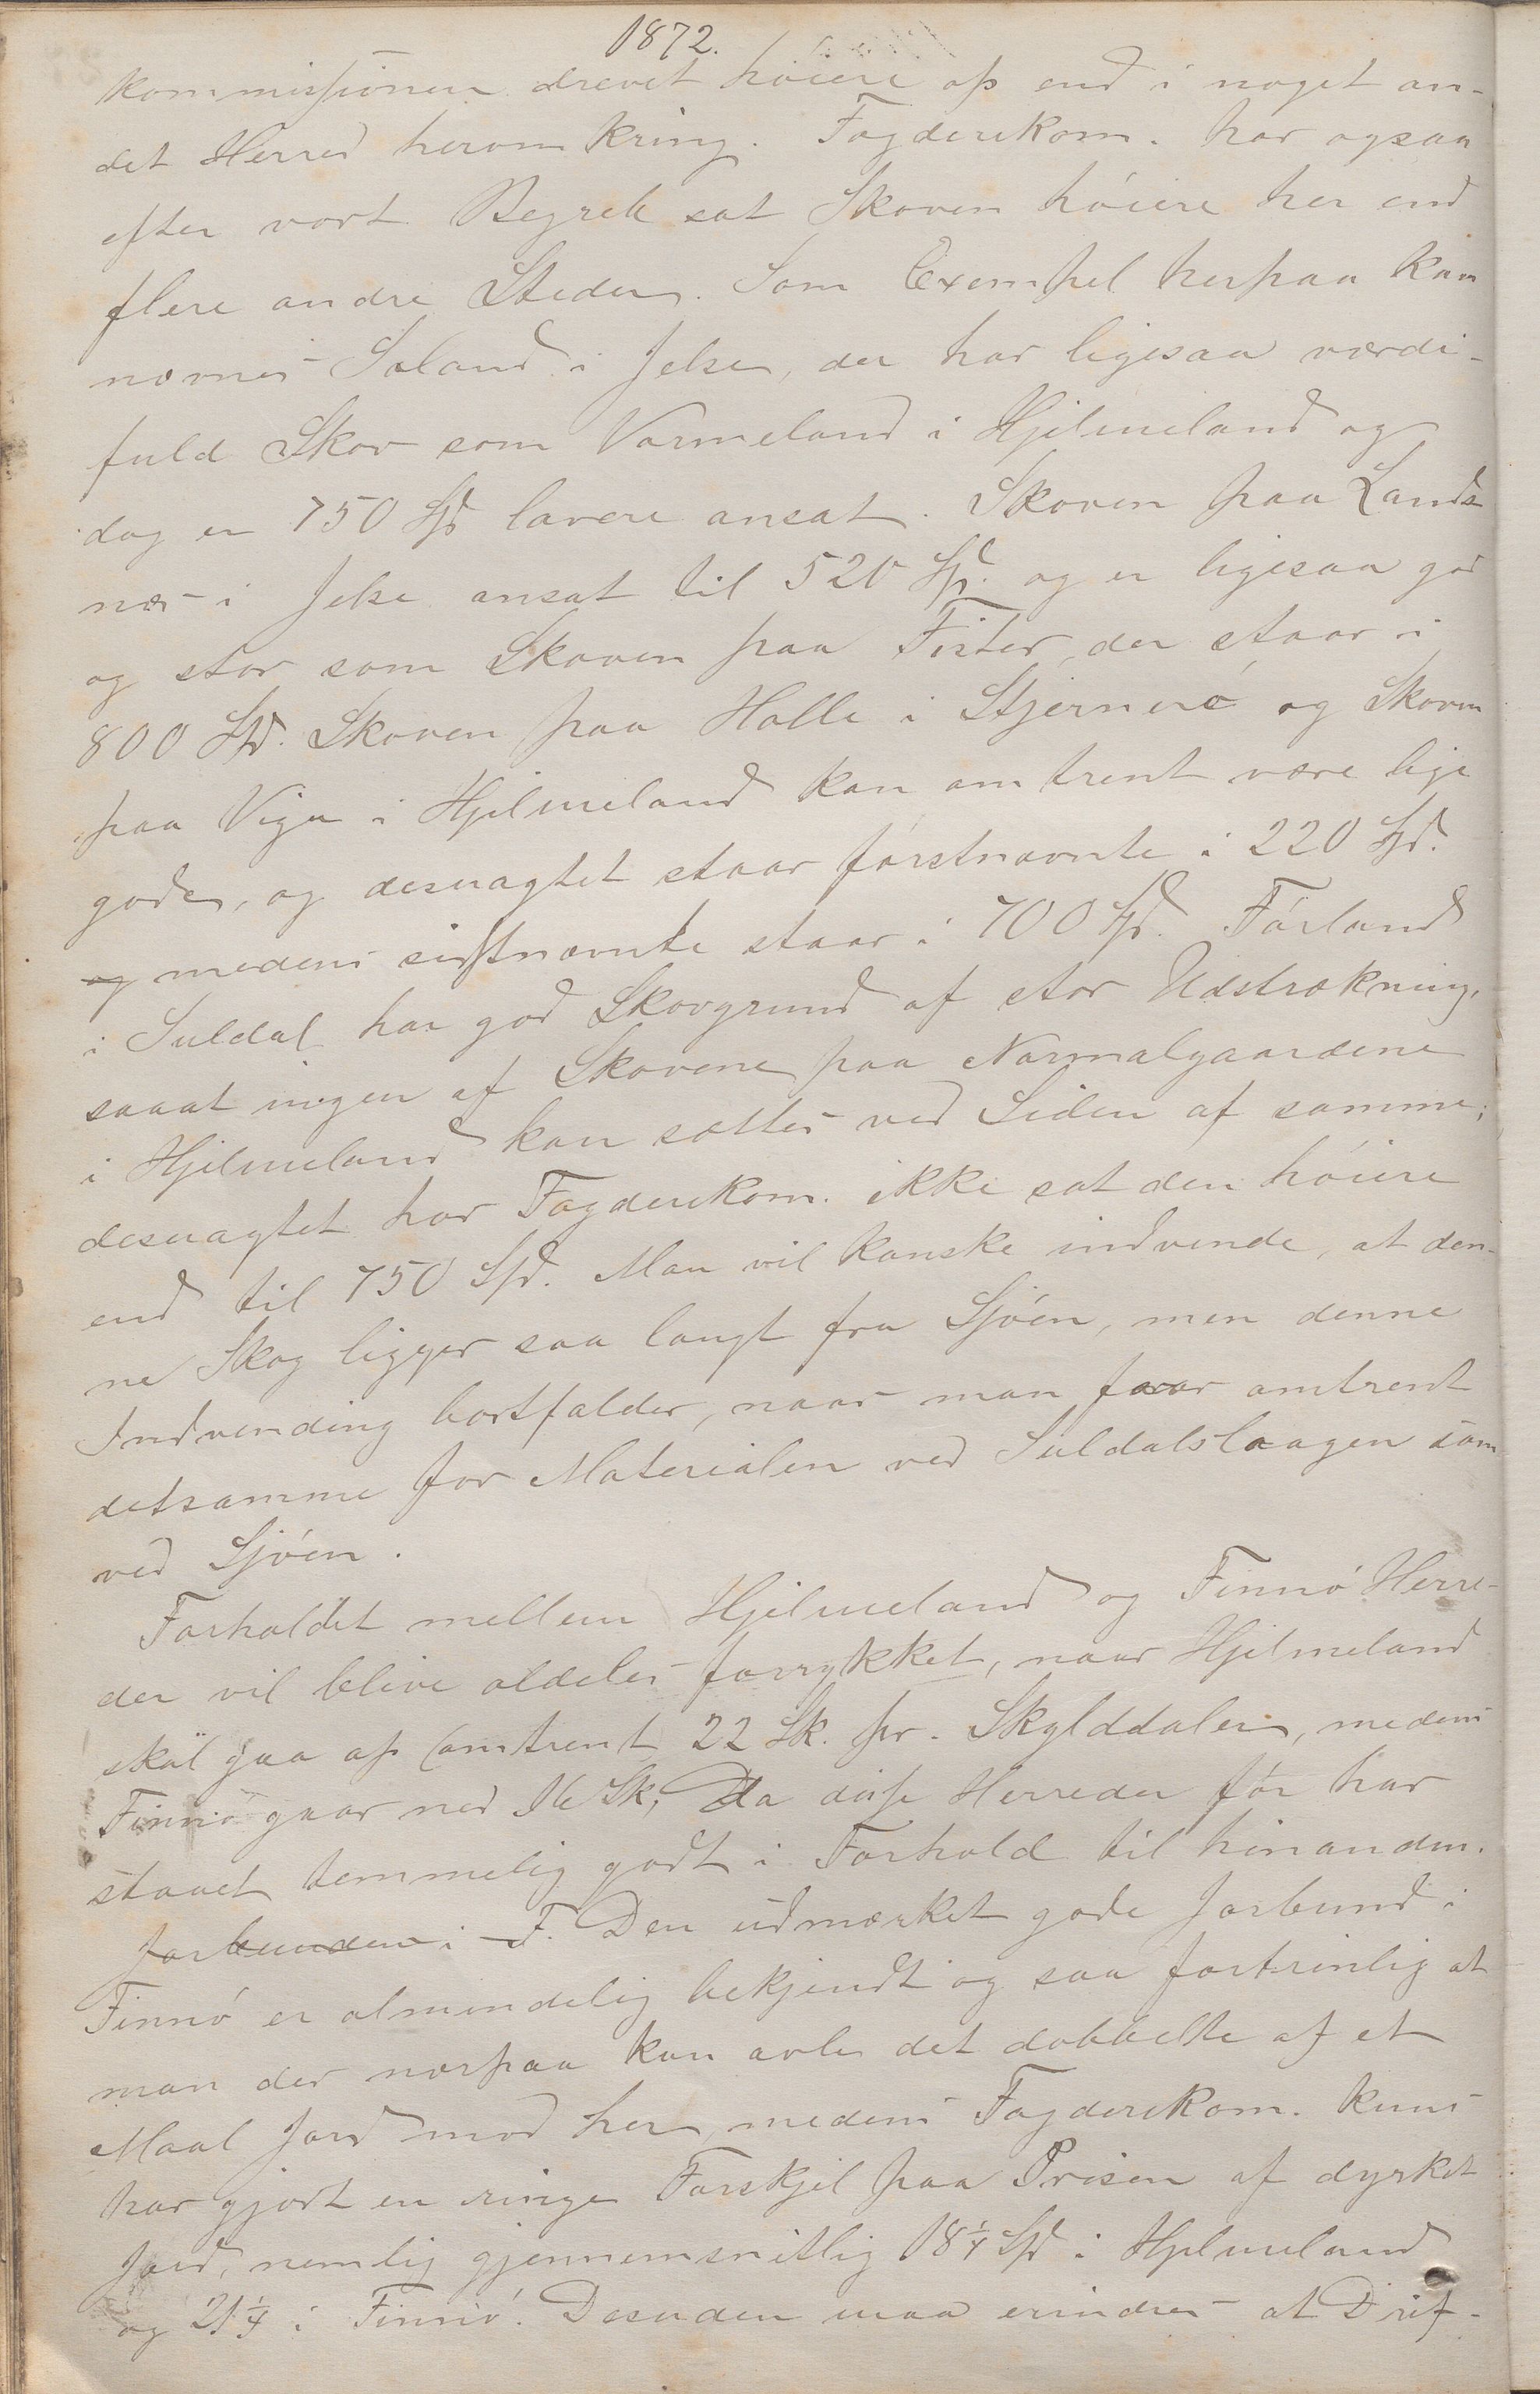 1872.
kommissionen drevet höiere op end i noget an-
det Herred heromkring. Fogderikom. har ogsaa
efter vort Begreb sat Skoven höiere her end
flere andre Steder. Som Exempel herpaa kan
nævnes Saland i Jelse, der har ligesaa værdi-
fuld Skov som Vormeland i Hjelmeland og
dog er 750 Spd lavere ansat. Skoven paa Lands-
næs i Jelse ansat til 520 Spd. og er ligesaa god
og stor som Skoven paa Fister, der staar i
800 Spd. Skoven paa Halle i Stjernerö og Skoven
paa Viga i Hjelmeland kan omtrent være lige
gode, og desuagtet staar förstnævnte i 220 Spd.
og medens sidstnævnte staar i 700 Spd. Förland
i Suldal har god Skovgrund af stor Udstrækning,
saaat ingen af Skovene paa Normalgaardene
i Hjelmeland kan sættes ved Siden af samme;
desuagtet har Fogderikom. ikke sat den höiere
end til 750 Spd. Man vil kanske indvende, at den-
ne Skog ligger saa langt fra Sjöen, men denne
Indvending bortfalder, naar man faar omtrent
detsamme for Materialen ved Suldalslaagen som
ved Sjöen.
Forholdet mellem Hjelmeland og Finnö Herre-
der vil blive aldeles forrykket, naar Hjelmeland
skal gaa op (omtrent 22 Sk. pr. Skylddaler, medens
Finnö gaar ned 16 Sk; Da disse Herreder för har
staaet temmelig godt i Forhold til hinanden.
Jorbunden i F. Den udmærket gode Jorbund i
Finnö er almindelig bekjendt og saa fortrinlig at
man der nærpaa kan avle det dobbelte af et
Maal Jord mod her, medens Fogderikom. kuns
har gjort en ringe Forskjel paa Prisen af dyrket
Jord, nemlig gjennemsnitlig 18 1/4 Spd i Hjelmeland
og 21 1/4 i Finnö. Desuden maa erindres at Drif-